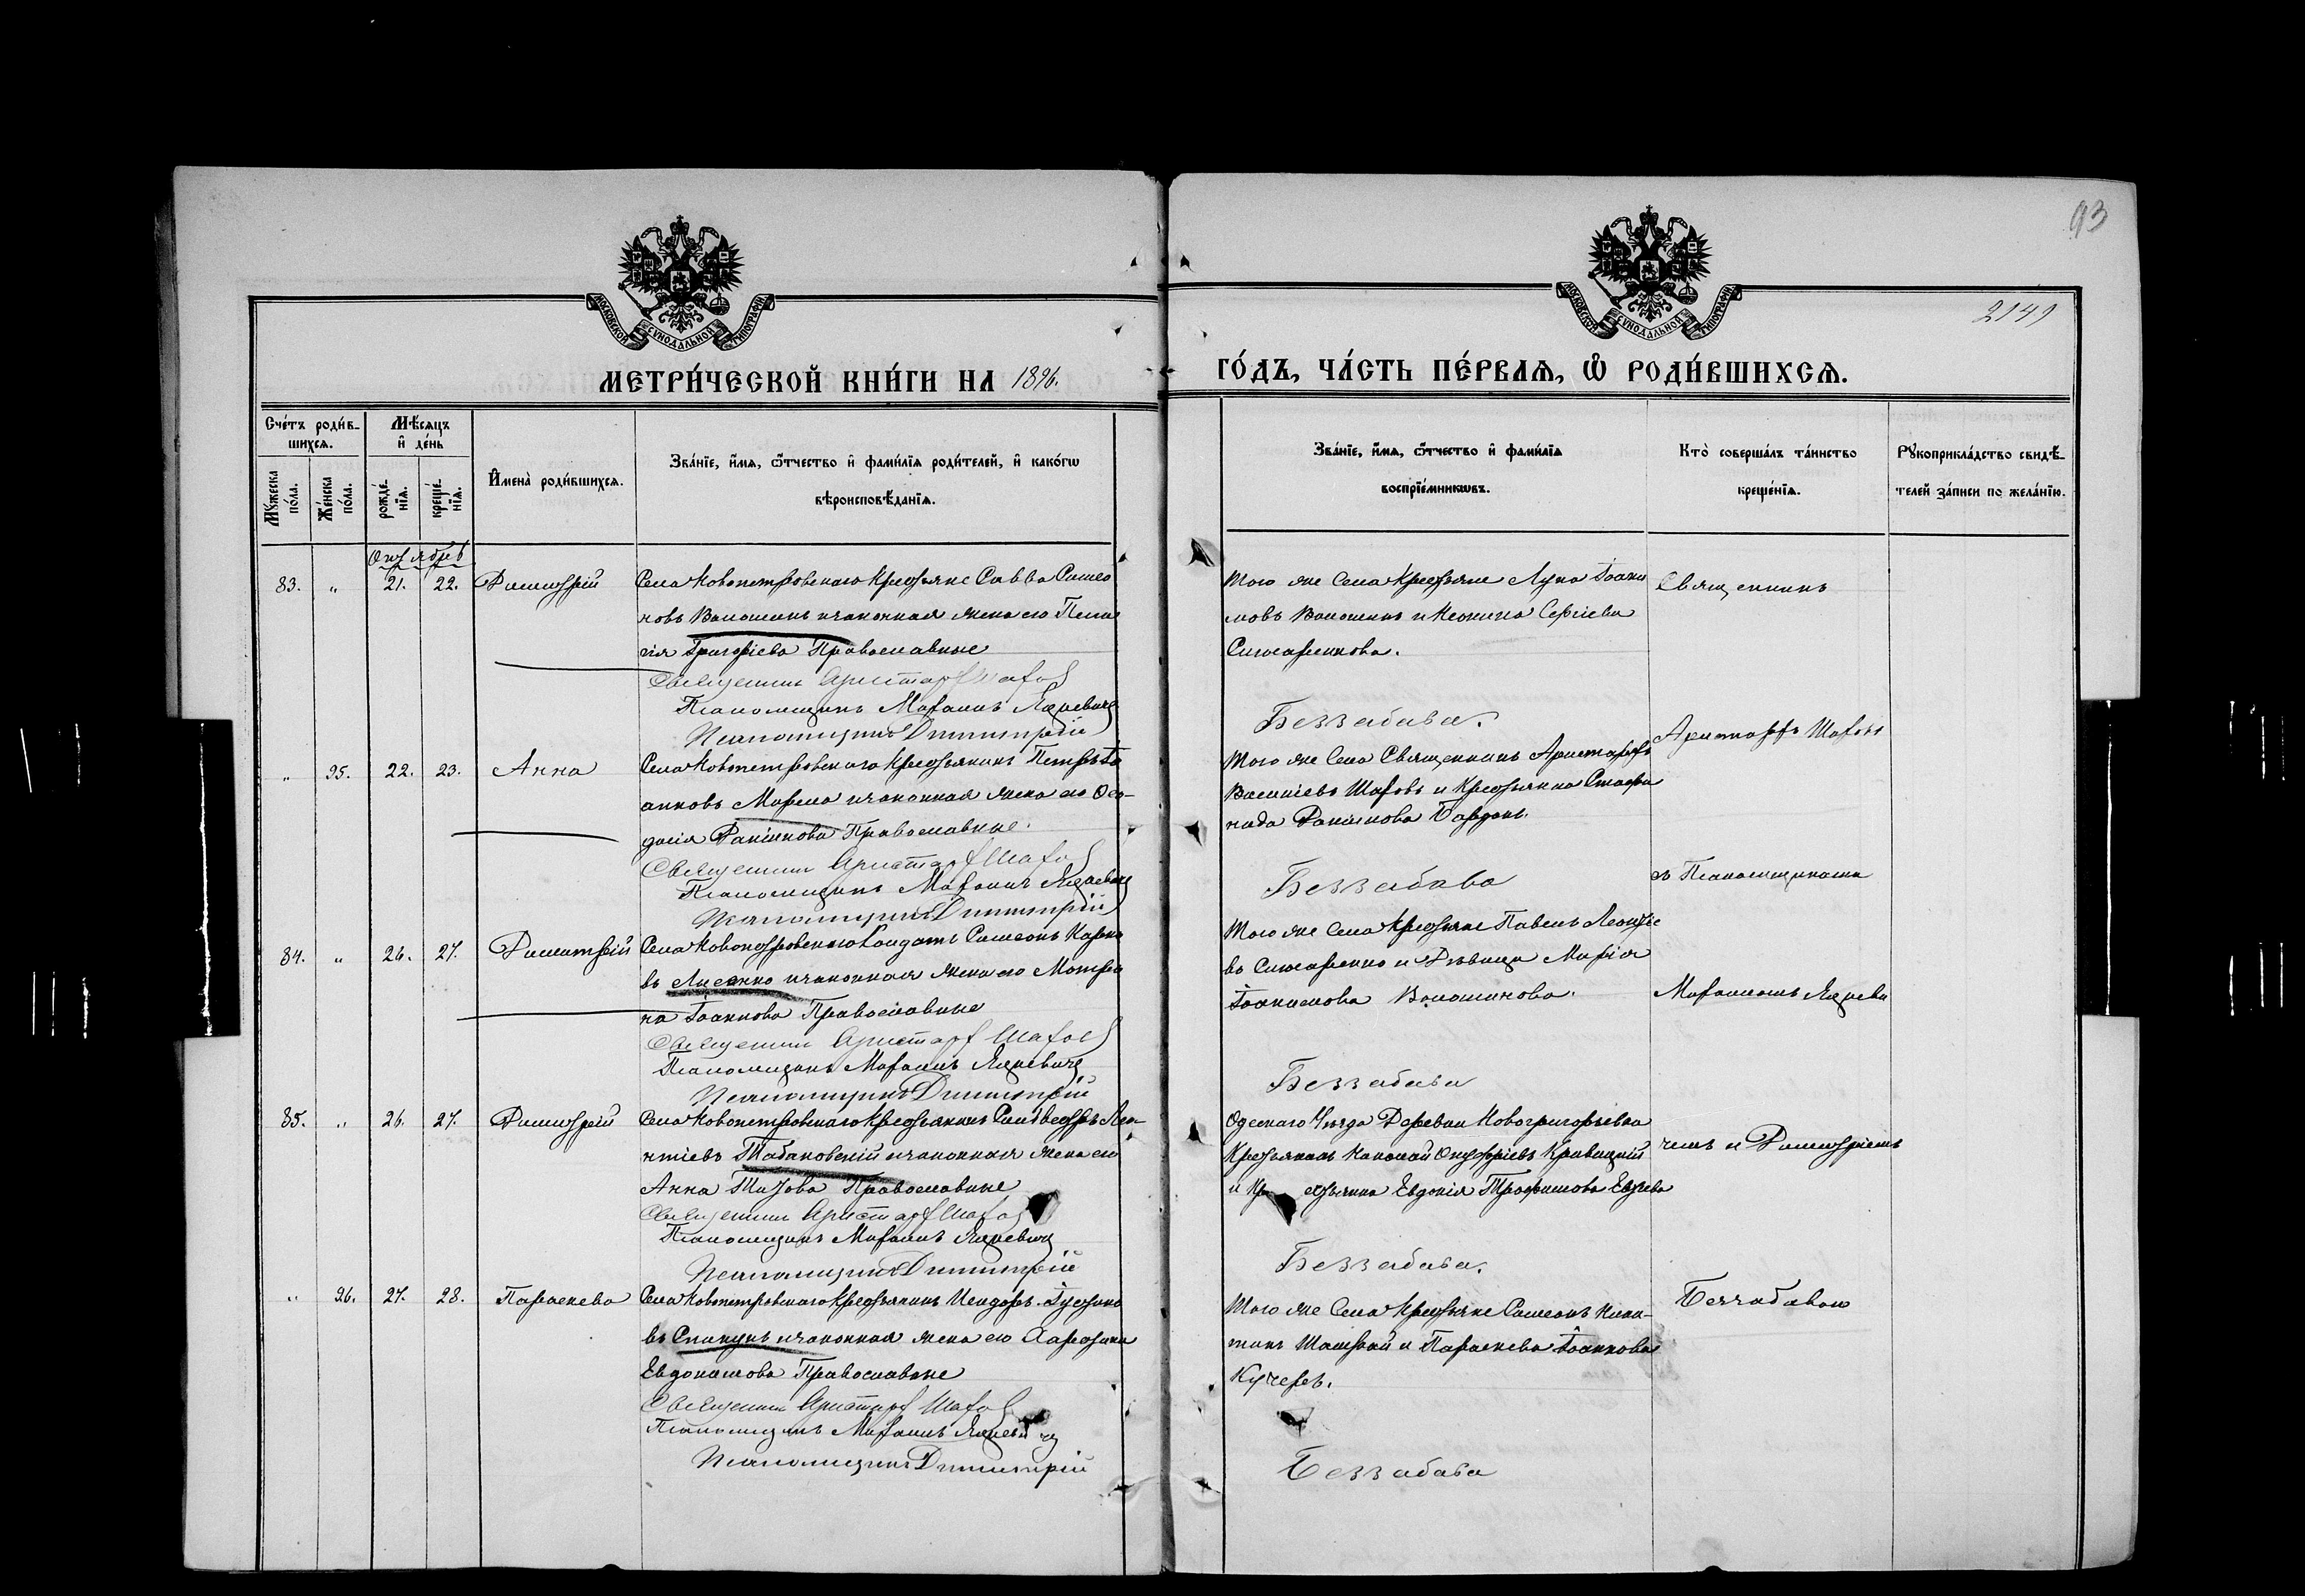 93
2141
МОСКОВСКОЙ СѴНОДАЛЬНОЙ ТИПОГРАФІИ
МОСКОВСКОЙ СѴНОДАЛЬНОЙ ТИПОГРАФІИ
МЕТРИ́ЧЕСКОЙ КНИ́ГИ НА 1896.
ГО́ДЪ, ЧА́СТЬ ПЕ́РВАѦ, Ѿ РОДИ́ВШИХСѦ.
Сче́тъ роди́в-
шихсѧ.
Мꙋ́жеска
по́ла.
Же́нска
по́ла.
Мѣ́сѧцъ
и҆ де́нь
рожде́-
нїѧ.
креще́-
нїѧ.
И҆мена̀ роди́вшихсѧ.
Зва́нїе, и҆́мѧ, ѻ҆́тчество и҆ фами́лїѧ роди́телей, и҆ како́гѡ
вѣроисповѣ́данїѧ.
Зва́нїе, и҆́мѧ, ѻ҆́тчество и҆ фами́лїѧ
воспрїе́мникѡвъ.
Кто̀ соверша́лъ та́инство
креще́нїѧ.
Рꙋкоприкла́дство свидѣ́-
телей за́писи по жела́нїю.
Октябрь
83. " 21. 22. Димитрій
Села Новопетровскаго Крестьяне Савва Симео
новъ Волошинъ и законная жена его Пела
гія Григоріева Православные
Священникъ Аристархъ Шаховъ
Псаломщикъ Мафаилъ Яцкевичъ
Псаломщикъ Димитрій
Того же Села Крестьяне Лука Іоаки
мовъ Волошинъ и Неонила Сергіева
Слюсаренкова.
Беззабава.
Священникъ
" 95. 22. 23. Анна
Села Новопетровскаго Крестьянинъ Петръ Іо
анновъ и законная жена его Ѳео-
досія Православные.
Священникъ Аристархъ Шаховъ
Псаломщикъ Мафаилъ Яцкевичъ
Псаломщикъ Димитрій
Того же Села Священникъ Аристархъ
Василіевъ Шаховъ и Крестьянка Стефа
нида
Беззабава
Аристархъ Шаховъ
съ Псаломщиками
84. " 26. 27. Димитрій
Села Новопетровскаго Солдатъ Симеонъ
въ Лисенко и законная жена его Матро
на Іоаннова Православные
Священникъ Аристархъ Шаховъ
Псаломщикъ Мафаилъ Яцкевичъ
Псаломщикъ Димитрій
Того же Села Крестьяне Павелъ Леонтіе
въ Слюсаренко и Дѣвица Марія
Іоакимова Волошинова.
Беззабава
Мафаиломъ Яцкеви
85. " 26. 27. Димитрій
Села Новопетровскаго Крестьянинъ Силвестръ Лео-
нтіевъ Табановскій и законная жена его
Анна Титова Православные
Священникъ Аристархъ Шаховъ
Псаломщикъ Мафаилъ Яцкевичъ
Псаломщикъ Димитрій
Одесскаго Уѣзда Деревни Новогригорьевки
Крестьянинъ Николай Онуфріевъ Кравицкій
и Крестьянка Евдокія Трофимова
Беззабава.
чемъ и Димитріемъ
" 96. 27. 28. Параскева
Села Новопетровскаго Крестьянинъ Исидоръ Іустино
въ Спинулъ и законная жена его
Евдокимова Православные
Священникъ Аристархъ Шаховъ
Псаломщикъ Мафаилъ Яцкевичъ
Псаломщикъ Димитрій
Того же Села Крестьяне Симеонъ
и Параскева Іоаннова
Кучеръ.
Беззабава
Беззабавою